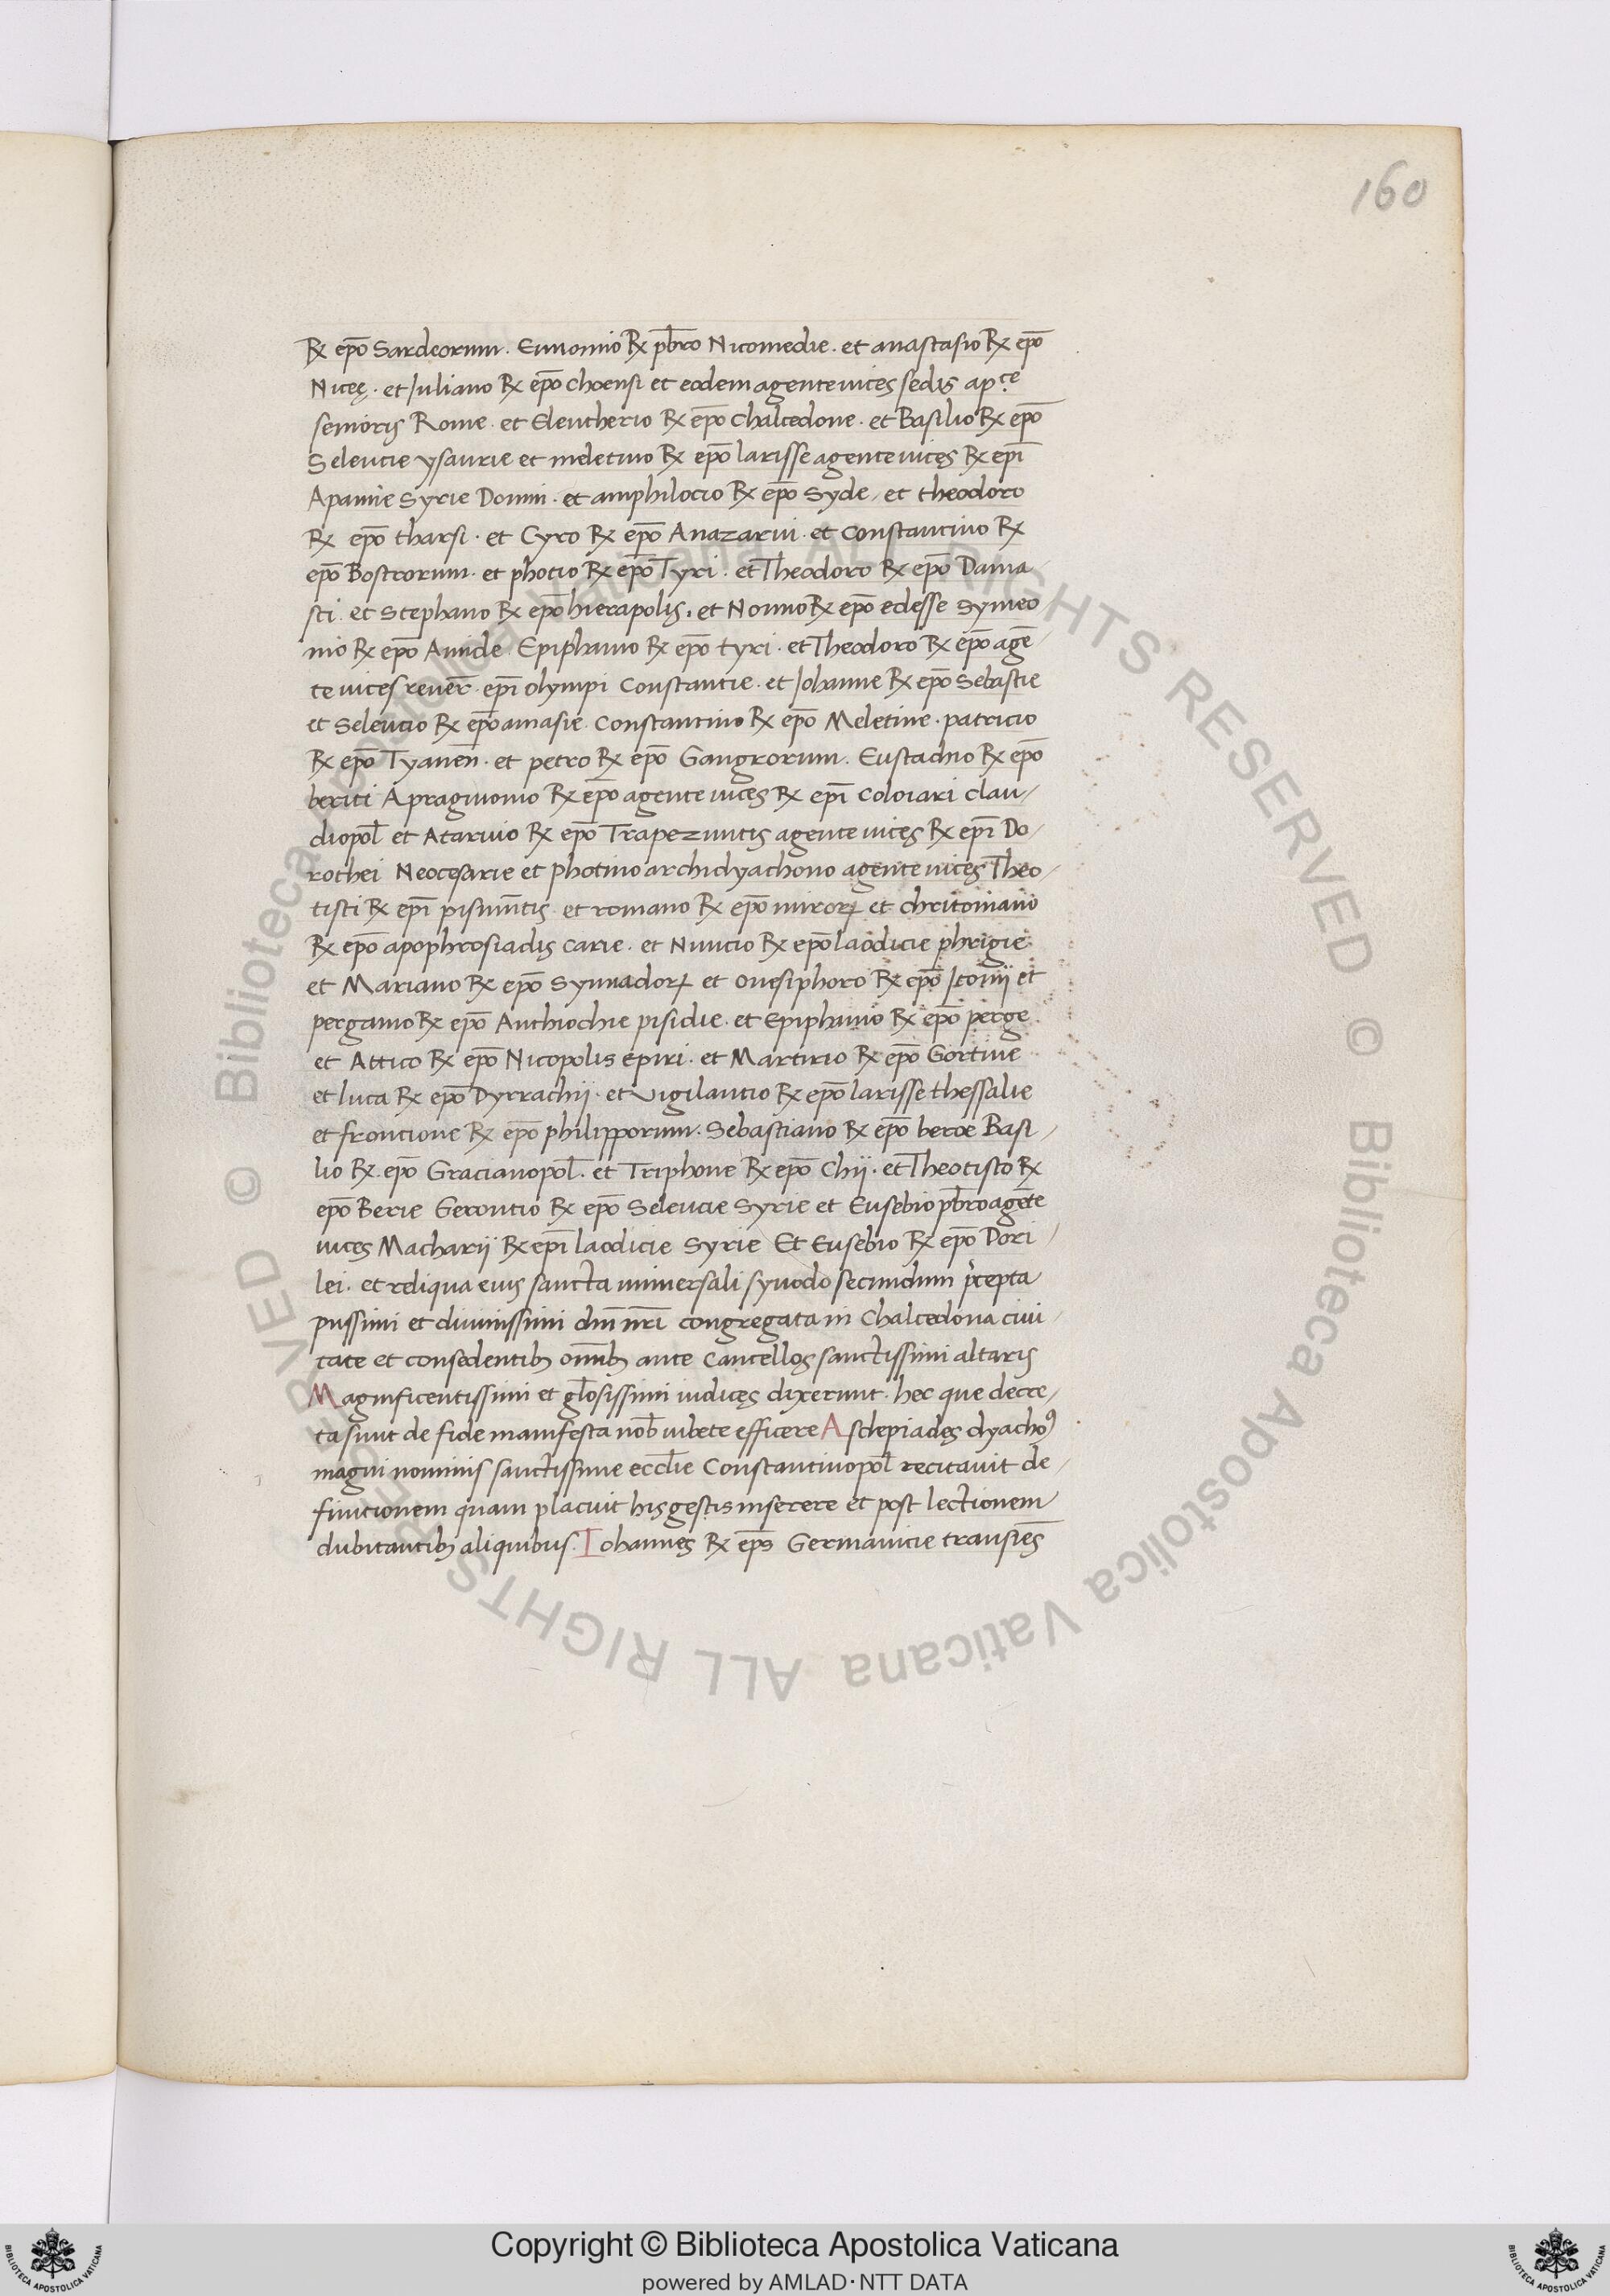 160
℞ ep̄o Sardeorum. Eunomio ℞ pb̄ro Nicomedie. et anastasio ℞ ep̄o
Nicę. et Juliano ℞ ep̄o choensi et eodem agente vices sedis ap.ce
senioris Rome. et Eleutherio ℞ ep̄o chalcedone. et Basilio ℞ ep̄o
Seleucie ysaurie et meletino ℞ ep̄o larisse agente vicęs ℞ ep̄i
Apamie Syrie Domni. et amphilocio ℞ ep̄o Syde, et theodoro
℞ ep̄o tharsi. et Cyro ℞ ep̄o Anazarvi. et Constantino ℞
ep̄o Bostrorum. et photio ℞ ep̄o Tyri. et Theodoro ℞ ep̄o Dama/
sci. et Stephano ℞ ep̄o hierapolis. et Nonno ℞ ep̄o edesse Symeo/
nio ℞ ep̄o Amide. Epiphanio ℞ ep̄o tyri. et Theodoro ℞ ep̄o agē/
te vices reuer̄. ep̄i olympi Constantie. et Johanne ℞ ep̄o Sebastie
et Seleucio ℞ ep̄o amasie. Constantino ℞ ep̄o Meletine. patricio
℞ ep̄o Tyanen̄. et petro ℞ ep̄o Gangrorum. Eustachio ℞ ep̄o
beriti Apragmonio ℞ ep̄o agente vices ℞ ep̄i Coloiari clau/
diopol̄ et Atarvio ℞ ep̄o Trapezuntis agente vicęs ℞ ep̄i Do/
rothei Neocęsarie et photino archidyachono agente vicęs Theo/
tisti ℞ ep̄i pisinūtis. et romano ℞ ep̄o mirorꝝ et chritoniano
℞ ep̄o apophrosiadis carie. et Nuncio ℞ ep̄o laodicie phrigie.
et Mariano ℞ ep̄o Synnadorꝝ et onesiphoro ℞ ep̄o Iconij et
pergamo ℞ ep̄o Anthiochie pisidie. et Epiphanio ℞ ep̄o perge
et Attico ℞ ep̄o Nicopolis epiri. et Martirio ℞ ep̄o Gortine
et luca ℞ ep̄o Dyrrachij. et Vigilantio ℞ ep̄o larisse thessalie
et frontione ℞ ep̄o philipporum. Sebastiano ℞ ep̄o beroe Basi/
lio ℞. ep̄o Gracianopol̄. et Triphone ℞ ep̄o Chij. et Theotisto ℞
ep̄o Berie Gerontio ℞ ep̄o Seleucie Syrie et Eusebio pb̄ro agēte
vicęs Macharij ℞ ep̄i laodicie Syrie Et Eusebio ℞ ep̄o Dori/
lei. et reliqua eius sancta universali synodo secundum p̄cepta
pijssimi et divinissimi dn̄i nr̄i congregata in Chalcedona civi/
tate et consedentibꝫ om̄ibꝫ ante Cancellos sanctissimi altaris
Magnificentissimi et gl̄osissimi iudicęs dixerunt. hec que decre/
ta sunt de fide manifesta nob̄ iubete efficere Asclepiades dyachoꝰ
magni nominis sanctissime eccl̄ie Constantinopol̄ recitavit de/
finitionem quam placuit his gestis inserere et post lectionem
dubitantibꝫ aliquibus. Iohannes ℞ ep̄s Germanicie transiēs
© Biblioteca Apostolica Vaticana ALL RIGHTS RESERVED © Biblioteca Apostolica Vaticana ALL RIGHTS RESERVED
Copyright © Biblioteca Apostolica Vaticana
powered by AMLAD · NTT DATA
BIBLIOTECA APOSTOLICA VATICANA
BIBLIOTECA APOSTOLICA VATICANA